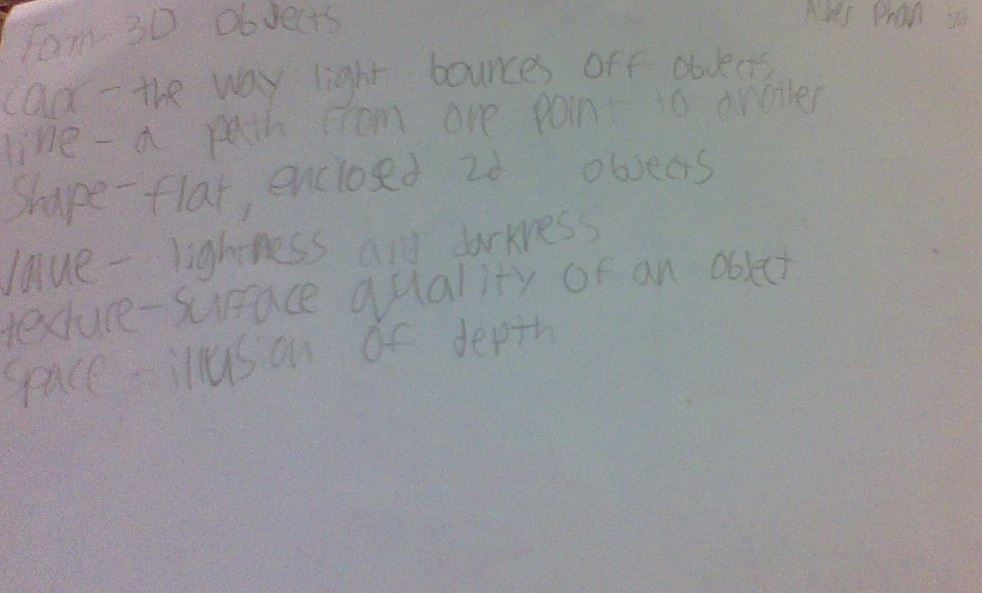 Form- 3D Objects
color - the way light bounces off objects
line - a path from one point to another
Shape - flat, enclosed 2d objects
Value - lightness and darkness
texture - surface quality of an object
Space - illusion of depth